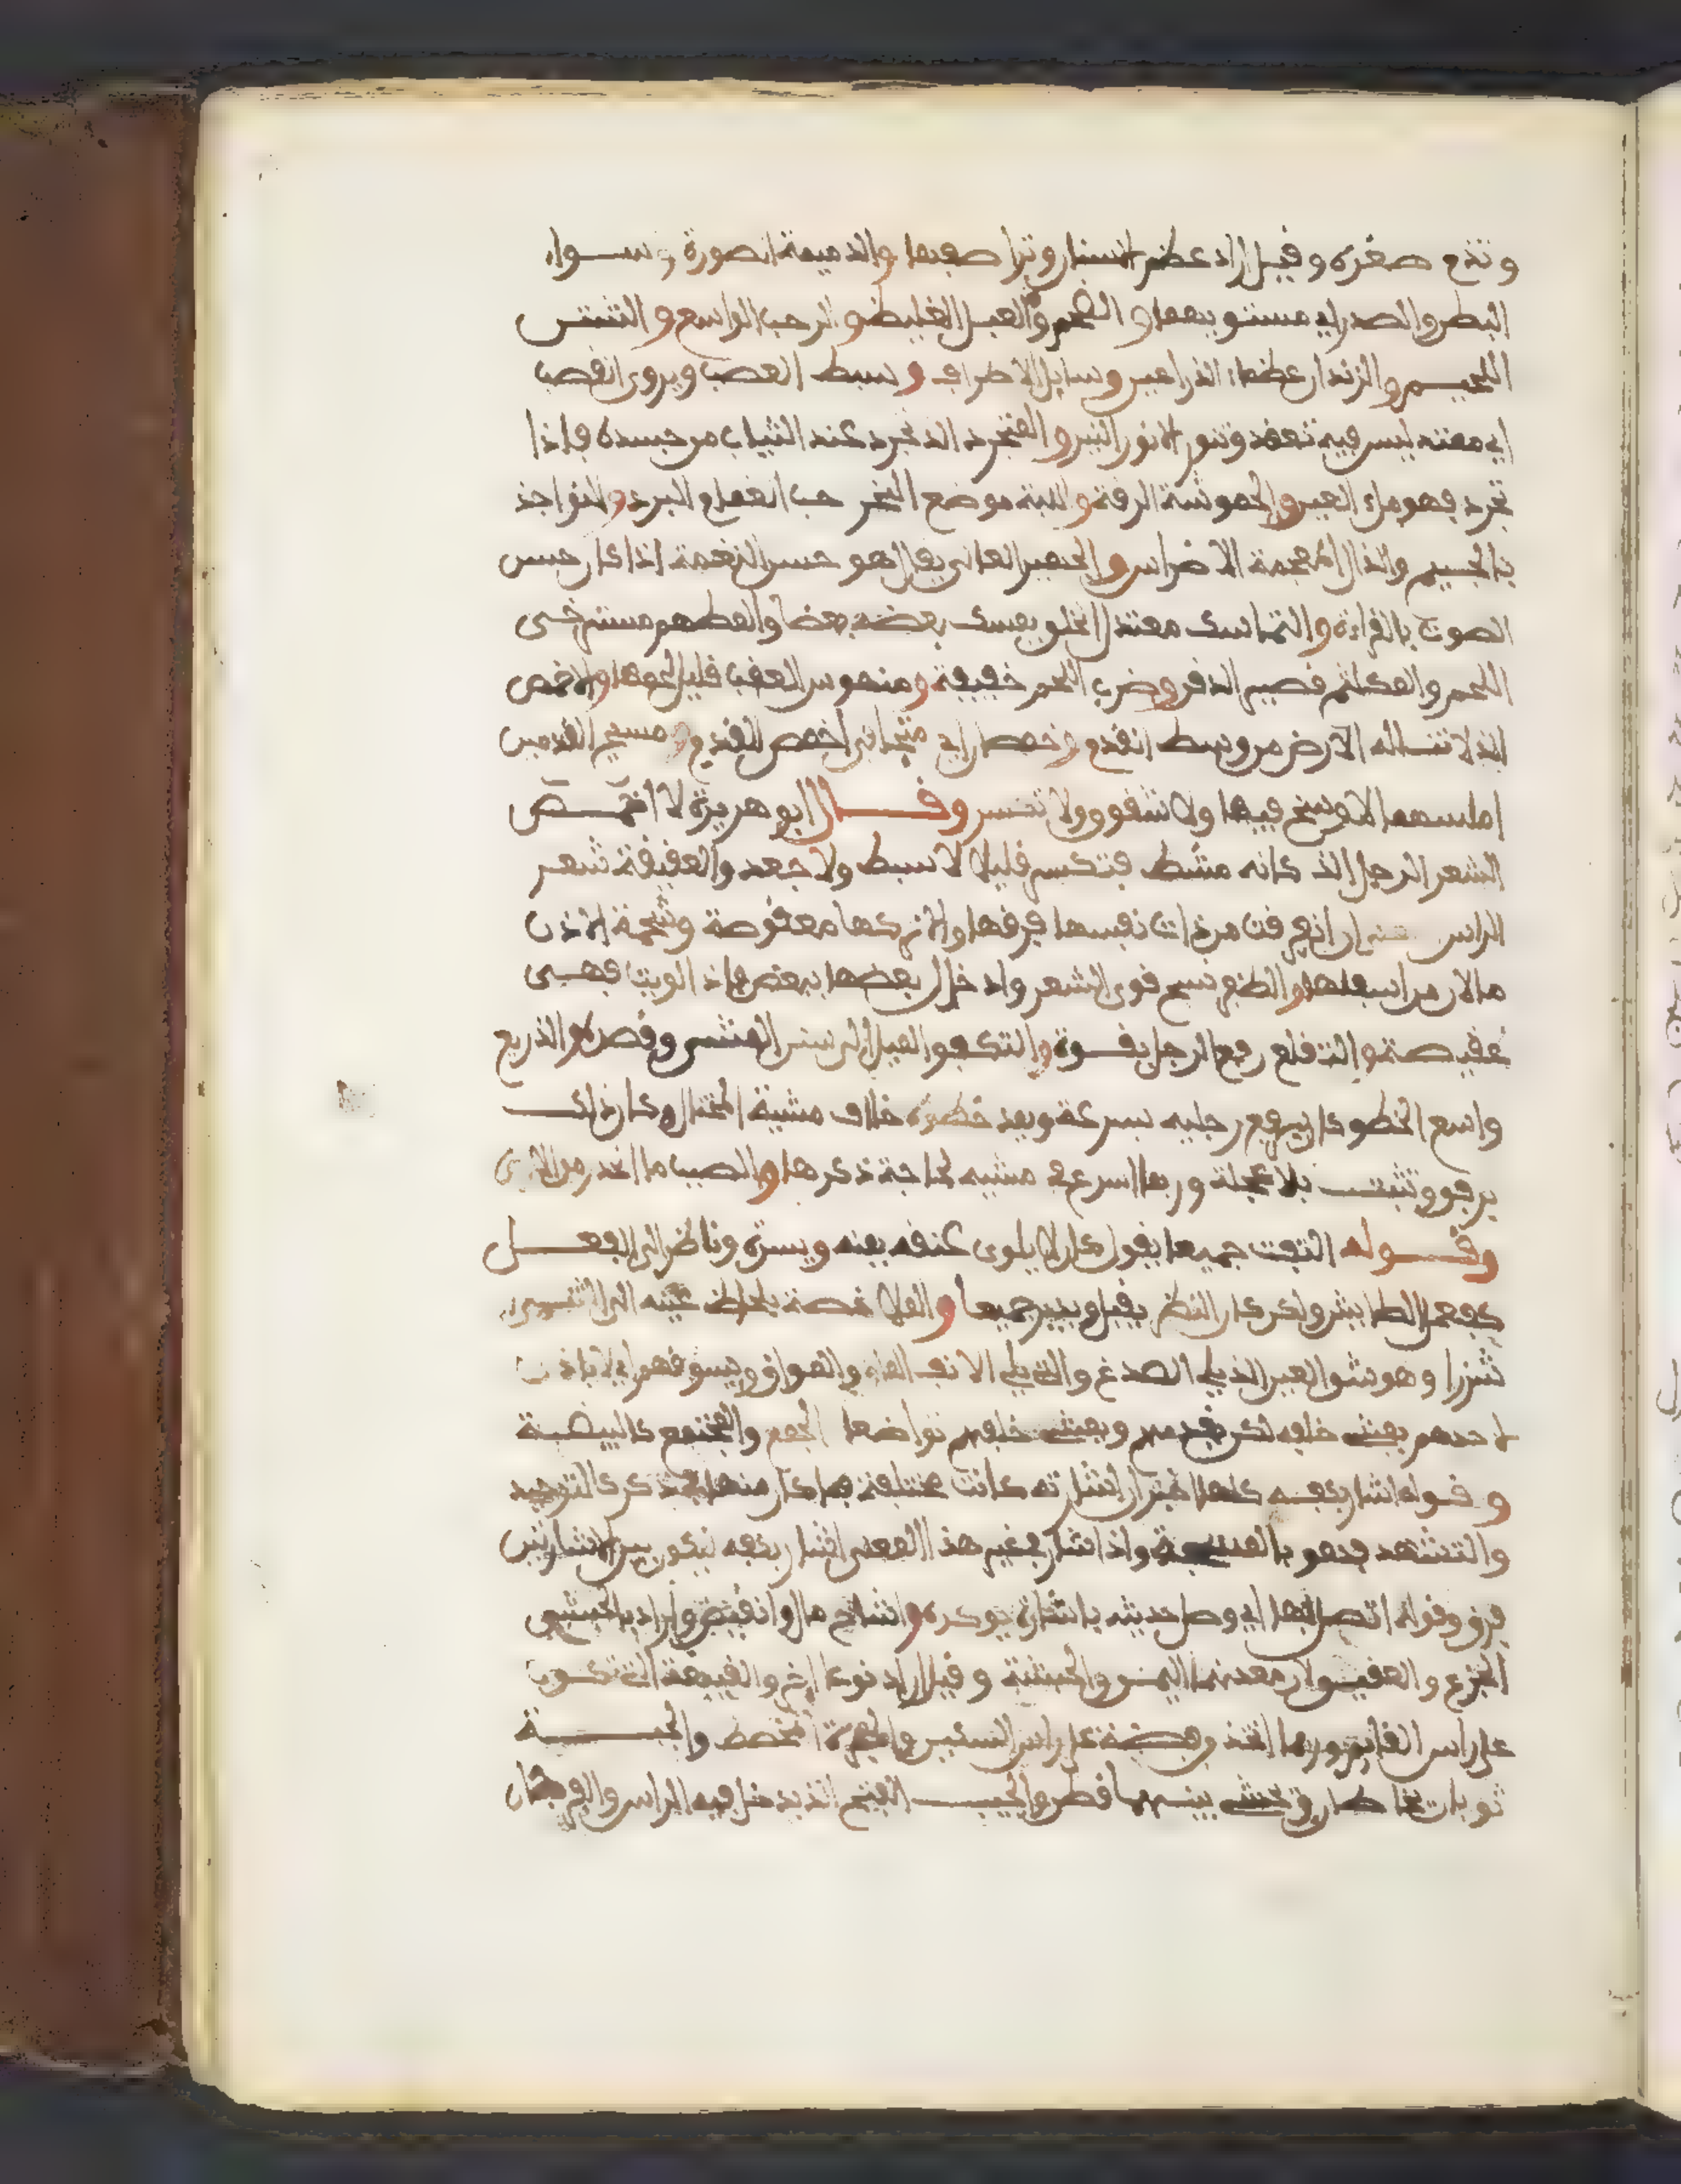 وتذم صغره وقيل اراد عظم الاسنان وتراصفها والدمية الصورة وسواء
البطن والصدر اي مستويهما والضخم والعبل الغليظ والرحب الواسع والشثن
اللحيم والزندان عظما الذراعين وسايل الاطراف وسبط العصب ويروى القصب
اي ممتد ليس فيه تعقد ونتو الانور النير والمتجرد الذ تجرد عنه الثياب من جسده فاذا
تجرد فهو ملء العين والحموشة الرقة واللبة موضع النحر حب الغمام البرد والنواجذ
بالجيم والذال المعجمة الاضراس والحسن يقال هو حسن النغمة اذا كان حسن
الصوت بالقراءة والتماسك معتدل الخلق يمسك بعضه بعضا والمطهم مسترخي
اللحم والمكلثم قصير الذقن وضرب اللحم خفيفه ومنهوس العقب قليل لحمها والاخمص
الذ لا تناله الارض من وسط القدم وخمصان اي متجافي اخمص القدم ومسيح القدمين
املسهما لا وسخ فيها ولا شقوق ولا تكسر وقال ابو هريرة لا اخمص
الشعر الرجل الذ كانه مشط فتكسر قليلا لا سبط ولا جعد والعقيقة شعر
الراس ان انفرقت من ذات نفسها فرقها والا تركها معقوصة وشحمة الاذن
ما لان من اسفلها والظفر نسج قوى الشعر وادخال بعضها ببعض فاذ الويت فهي
عقيصة والتقلع رفع الرجل بقوة والتكفو الميل الى سنن الممشى وقصده والذريع
واسع الخطو كان يرفع رجليه بسرعة ويمد خطوه خلاف مشية المختال وكان ذلك
برفق وتثبت بلا عجلة وربما اسرع في مشيه لحاجة ذكرها والصبب ما انحدر من الارض
وقوله التفت جميعا يقول كان لا يلوى عنقه يمنه ويسرة وناظر الى الفعل
كفعل الطايش ولكن كان النظر يقبل ويدبر جميعا والملاحظة يلحظ بعينه الى الشيء
شزرا وهو شق العين الذ يلي الصدغ والتي يلي الانف الماق والمواق ويسوقهم اي لا ياذن
لاحدهم يمشي خلفه لكن يقدمهم ويمشي خلفهم تواضعا الجمع والمجتمع كالبيضة
وقوله اشار بكفه كلها اخبر ان اشارته كانت مختلفة فما كان منها في ذكر التوحيد
والتشهد فهو بالمسبحة واذا اشار في غير هذا المعنى اشار بكفه ليكون بين الاشارتين
فرق وقوله اتصل بها اي وصل حديثه باشارة توكده واشاح مال وانقبض واراد بالحبشي
الجزع والعقيق لان معدنهما اليمن والحبشة وقيل اراد نوعا اخر والقبيعة التي تكون
على راس القايم وربما اتخذ من فضة على راس السكين والحبرة المخطط والجبة
ثوبان يخاطان ويحشى بينهما قطن والجيب الفتح الذ يدخل فيه الراس والفرجان